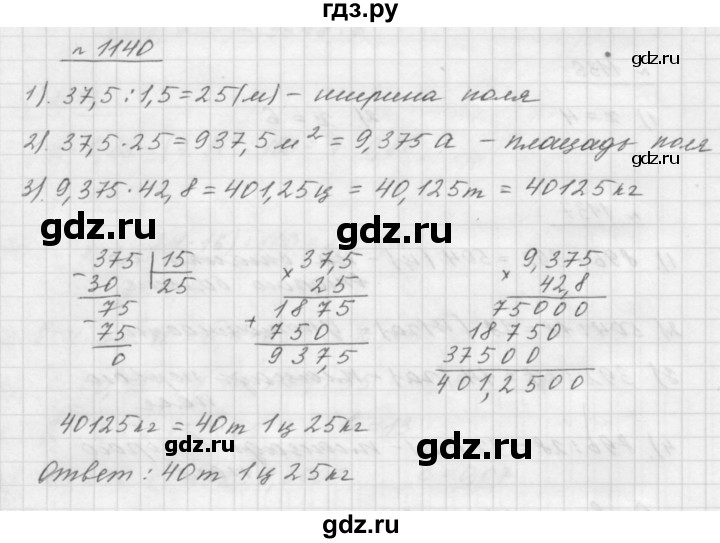 гдз.ру
№ 1140
gdz.ru
1). 37,5 : 1,5 = 25 (м) - ширина поля
2). 37,5 · 25 = 937,5 м² = 9,375 а - площадь поля
gdz.ru
3). 9,375 · 42,8 = 401,25 ц = 40,125 т = 40125 кг
gdz.ru gdz.ru gdz.ru
375 | 15
- 30 | 25
75
- 75
0
37,5
× 25
1875
+ 750
937,5
9,375
× 42,8
75000
18750
37500
401,2500
40125 кг = 40 т 1 ц 25 кг
gdz.ru gdz.ru
Ответ : 40 т 1 ц 25 кг
gdz.ru